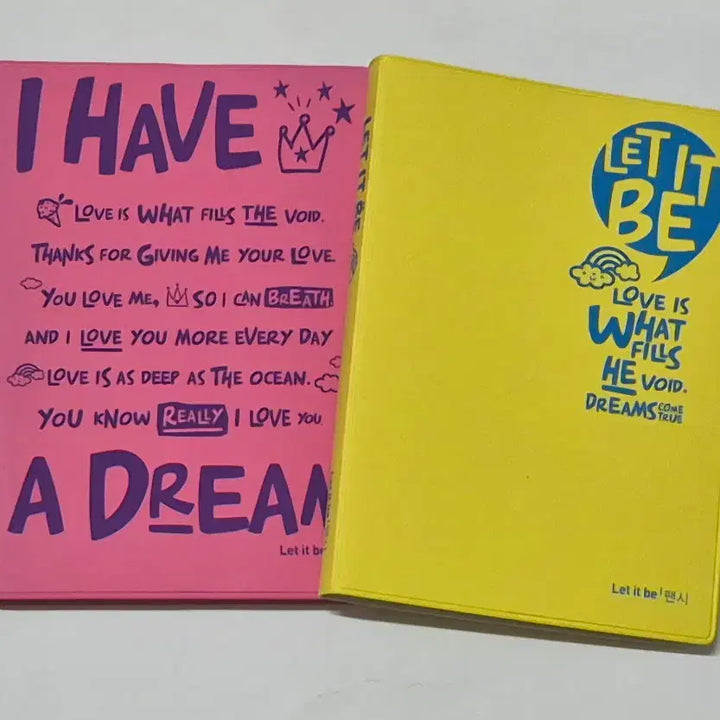 I HAVE
LOVE IS WHAT FILLS THE VOID.
THANKS FOR GIVING ME YOUR LOVE.
YOU LOVE ME, SO I CAN BREATH.
AND I LOVE YOU MORE EVERY DAY
LOVE IS AS DEEP AS THE OCEAN.
YOU KNOW REALLY I LOVE YOU
A DREAM
Let it be
LET IT BE
LET IT
BE
LOVE IS
WHAT
FILLS
HE VOID.
DREAMS COME
TRUE
Let it be 팬시